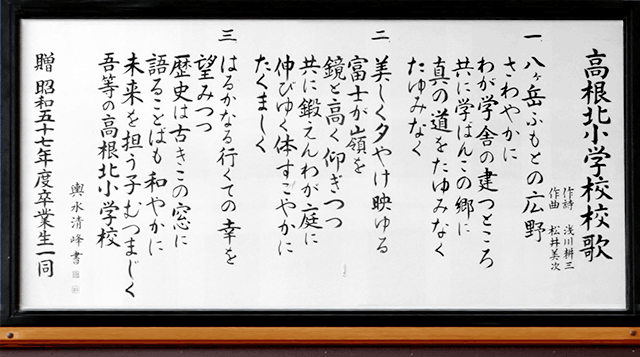 高根北小学校校歌
作詩 浅川耕三
作曲 松井美次
一 八ヶ岳ふもとの広野
さわやかに
わが学舎の建つところ
共に学ばんこの郷に
真の道をたゆみなく
たゆみなく
二 美しく夕やけ映ゆる
富士が嶺を
鏡と高く仰ぎつつ
共に鍛えんわが庭に
伸びゆく体すこやかに
たくましく
三 はるかなる行くての幸を
望みつつ
歴史は古きこの窓に
語ることばも和やかに
未来を担う子むつまじく
吾等の高根北小学校
輿水清峰書
贈 昭和五十七年度卒業生一同